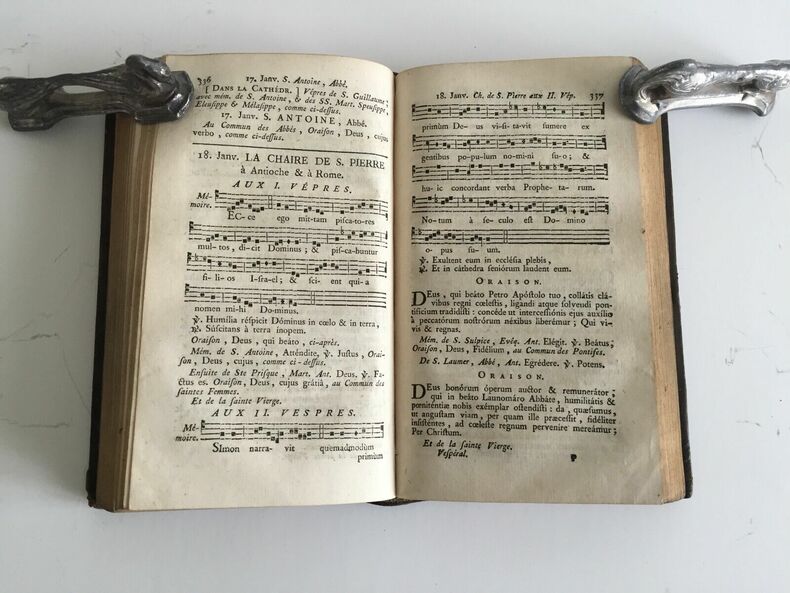 336 17. Janv. S. Antoine, Abbé.
[ DANS LA CATHÉDR. ] Vépres de S. Guillaume;
avec mém. de S. Antoine, & des SS. Mart. Speusippe,
Eleusippe & Mélasippe, comme ci-dessus.
17. Janv. S. ANTOINE, Abbé.
Au Commun des Abbés, Oraison, Deus, cujus
verbo, comme ci-dessus.
18. Janv. LA CHAIRE DE S. PIERRE
à Antioche & à Rome.
AUX I. VÉPRES.
Mé-
moire.
ECce ego mittam piscatores
multos, dicit Dominus; & piscabuntur
filios Israel; & scient quia
nomen mihi Dominus.
℣. Humília réspicit Dóminus in cœlo & in terra,
℟. Súscitans à terra inopem.
Oraison, Deus, qui beáto, ci-après.
Mém. de S. Antoine, Atténdite, ℣. Justus, Orai-
son, Deus, cujus, comme ci-dessus.
Ensuite de Ste Prisque, Mart. Ant. Deus. ℣. Fa-
ctus es. Oraison, Deus, cujus grátiâ, au Commun des
saintes Femmes.
Et de la sainte Vierge.
AUX II. VESPRES.
Mé-
moire.
SImon narravit quemadmodùm
primùm
18. Janv. Ch. de S. Pierre aux II. Vép. 337
primùm Deus visitavit sumere ex
gentibus populum nomini suo; &
huic concordant verba Prophetarum.
Notum à seculo est Domino
opus suum.
℣. Exultent eum in ecclésia plebis,
℟. Et in cáthedra seniórum laudent eum.
ORAISON.
DEus, qui beáto Petro Apóstolo tuo, collátis clá-
vibus regni cœlestis, ligandi atque solvendi pon-
tificium tradidísti: concéde ut intercessiónis ejus auxílio
à peccatórum nostrórum néxibus liberémur; Qui vi-
vis & regnas.
Mém. de S. Sulpice, Evêq. Ant. Elégit. ℣. Beátus,
Oraison, Deus, Fidélium, au Commun des Pontifes.
De S. Laumer, Abbé, Ant. Egrédere. ℣. Potens.
ORAISON.
DEus bonórum óperum auctor & remunerátor;
qui in beáto Launomáro Abbáte, humilitátis &
pœniténtiæ nobis exémplar ostendísti: da, quæsumus,
ut angustam viam, per quam ille præcéssit, fidéliter
insistentes, ad cœleste regnum pervenire mereámur;
Per Christum.
Et de la sainte Vierge.
Vespéral. P